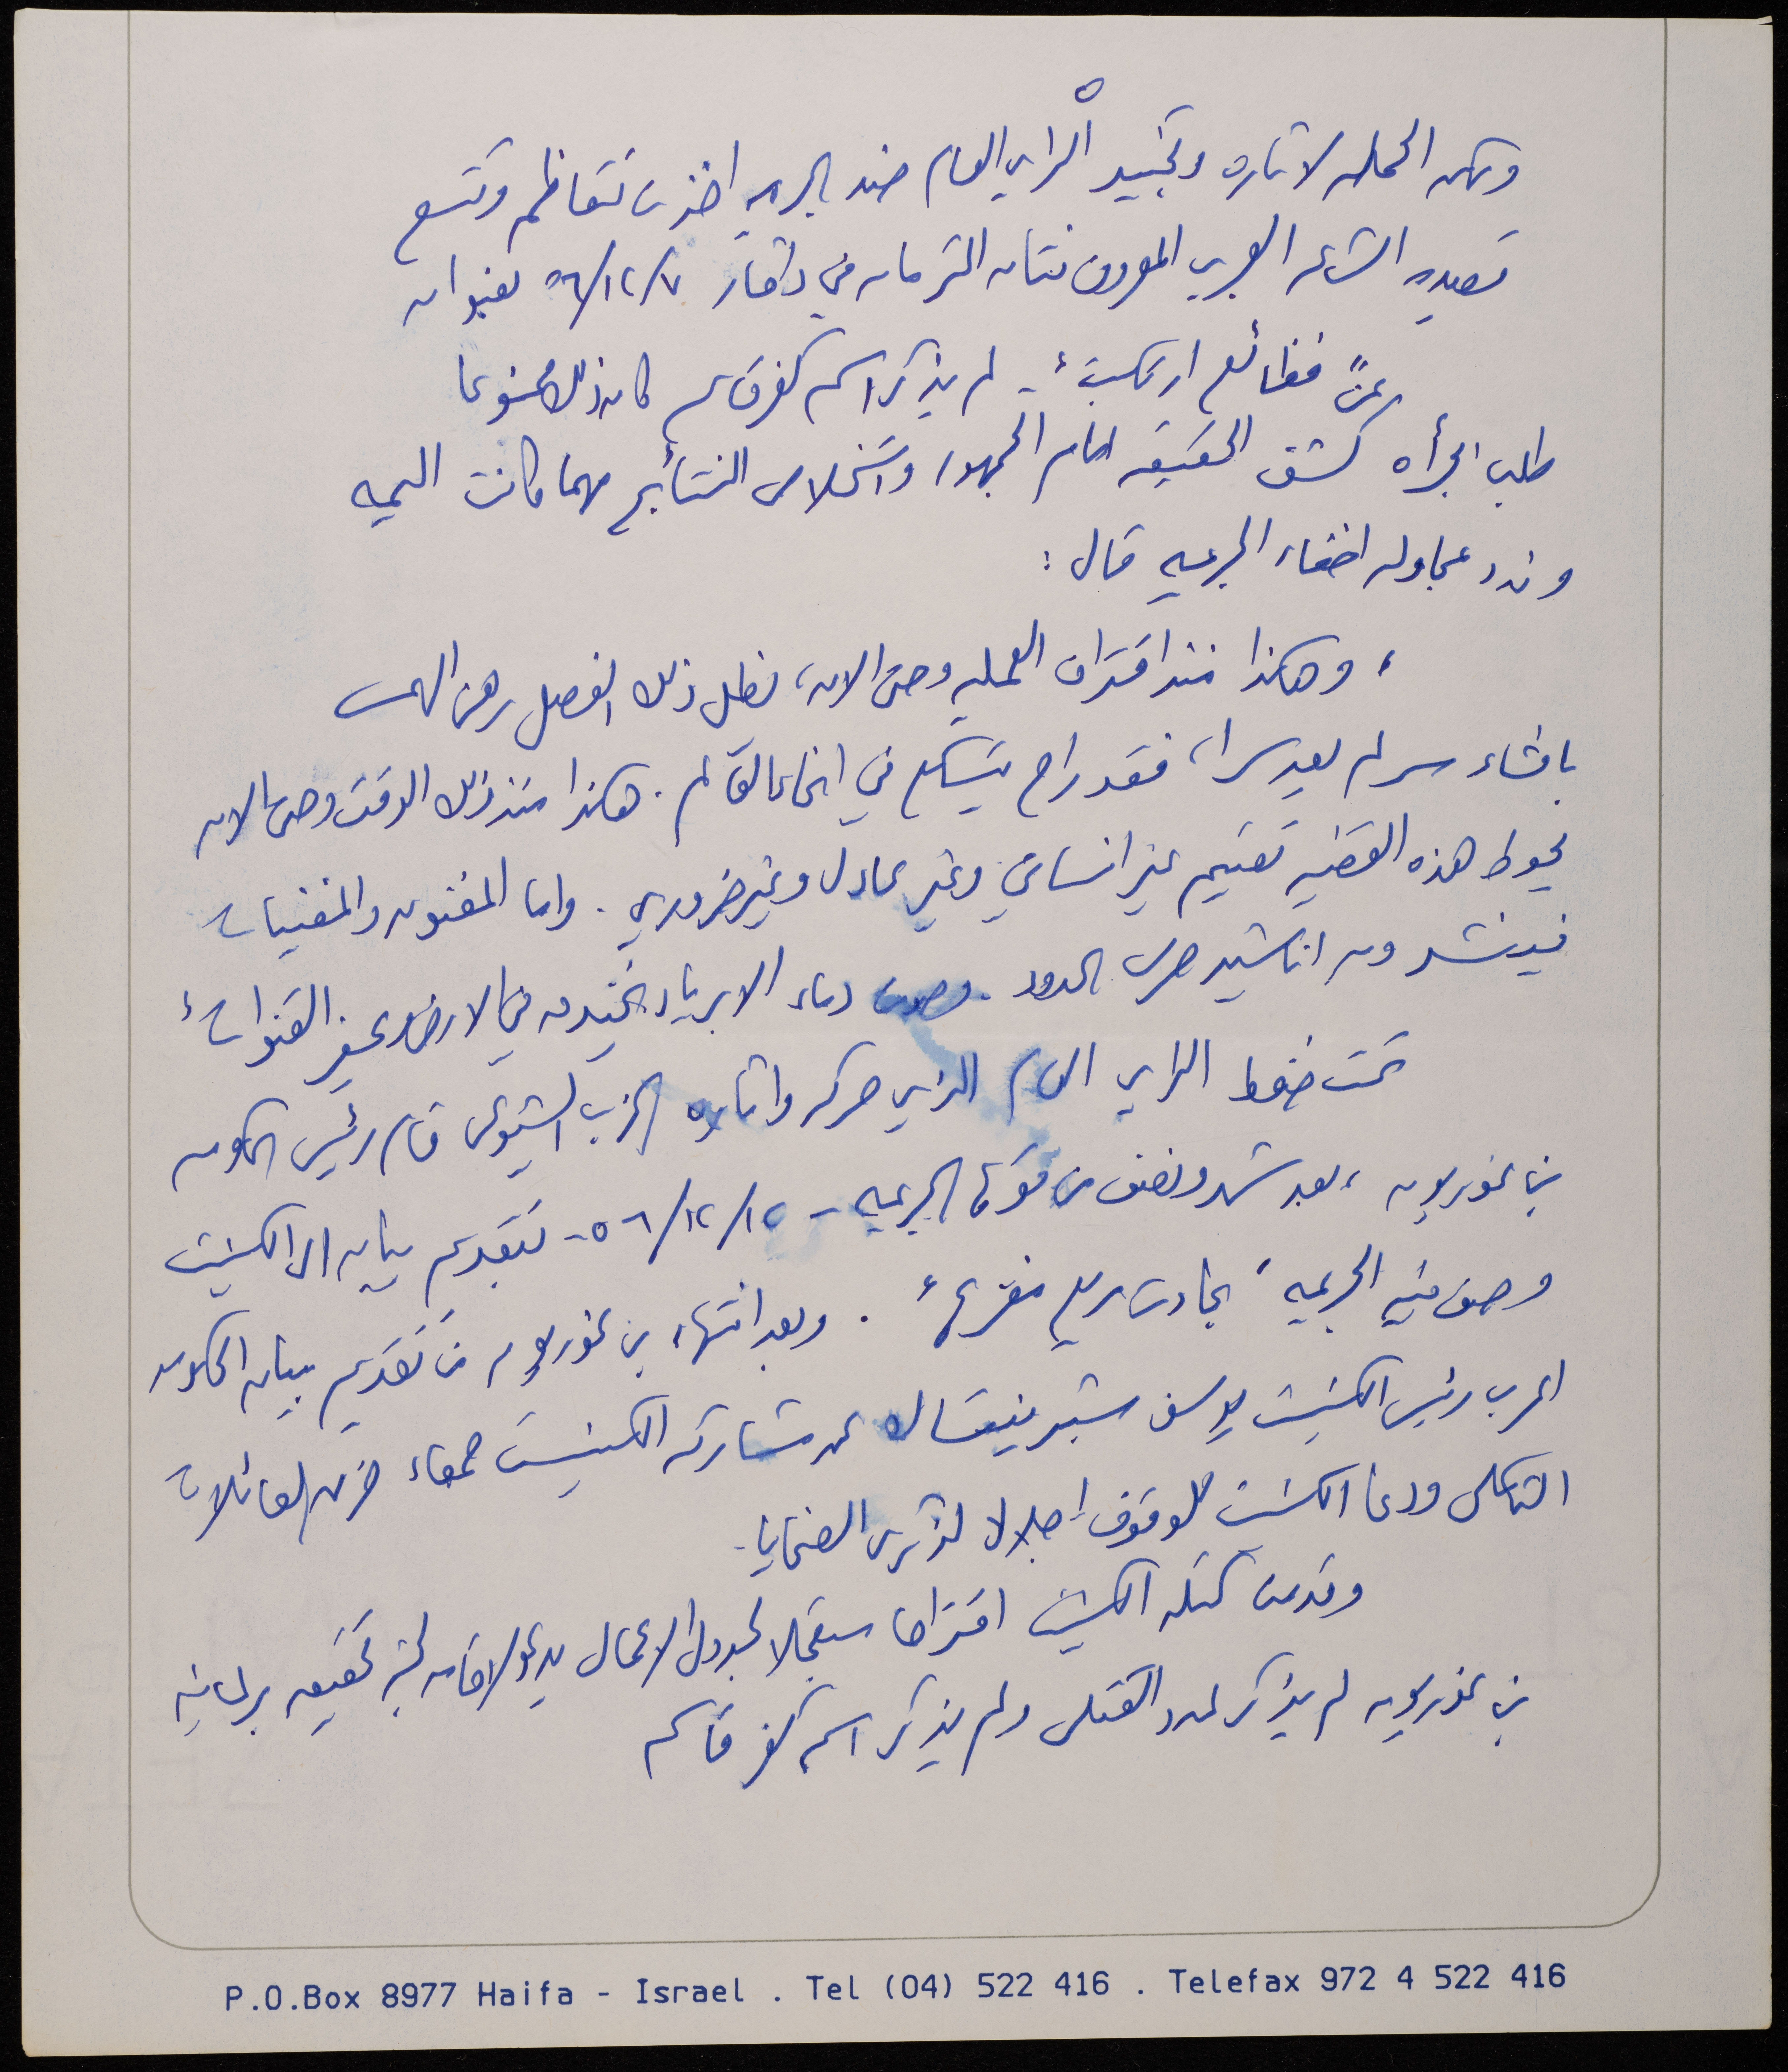 ٥
ولكن الحملة لاثارة وتجنيد الراي العام ضد الجريمه اخذت تتعاظم وتتسع
قصيده الشاعر العبري المعروف نتان الترمان في دافار ٥٦/١٢/٧ بعنوان
"عن فظائع ارتكبت" - لم يذكر اسم كفرقاسم كان ذلك ممنوعا
طلب بجرأه كشف الحقيقه امام الجمهور واستخلاص النتائج مهما كانت اليمه
وندد بمحاوله اخفاء الجريمه قال:
"وهكذا منذ اقتراف العمليه وحتى الان، يظل ذلك الفصل رهن الهمس
بافشاء سر لم يعد سرا، فقد راح يتسكع في انحاء العالم. هكذا منذ ذلك الوقت وحتى الان
يحوط هذه القضيه تعتيم غير انساني وغير عادل وغير ضروري. واما المغنون والمغنيات
فينشدون اناشيد حرس الحدود. وصوت دماء الابرياء يخيد من الارض وعبر القنوات"
تحت ضغط الراي العام الذي حركه واثاره الحزب الشيوعي قام رئيس الحكومه
بن غوريون، بعد شهر ونصف من وقوع الجريمه - ٥٦/١٢/١٢ - بتقديم بيان الى الكنيست
وصف فيه الجريمه "بحادث مريع مفزع". وبعد انتهاء بن غوريون من تقديم بيان الحكومه
اعرب رئيس الكنيست يوسف شبرينتساك عن مشاركه الكنيست جمعاء حزن العائلات
الثكلى ودعا الكنيست للوقوف اجلالا لذكرى الضحايا.
وقدمت كتله الكنيست اقتراحا مستعجلا لجدول الاعمال يدعو لاقامه لجنه تحقيق برلمانيه
بن غوريون لم يذكر عدد القتلى ولم يذكر اسم كفر قاسم
P.O.Box 8977 Haifa - Israel . Tel (04) 522 416 . Telefax 972 4 522 416